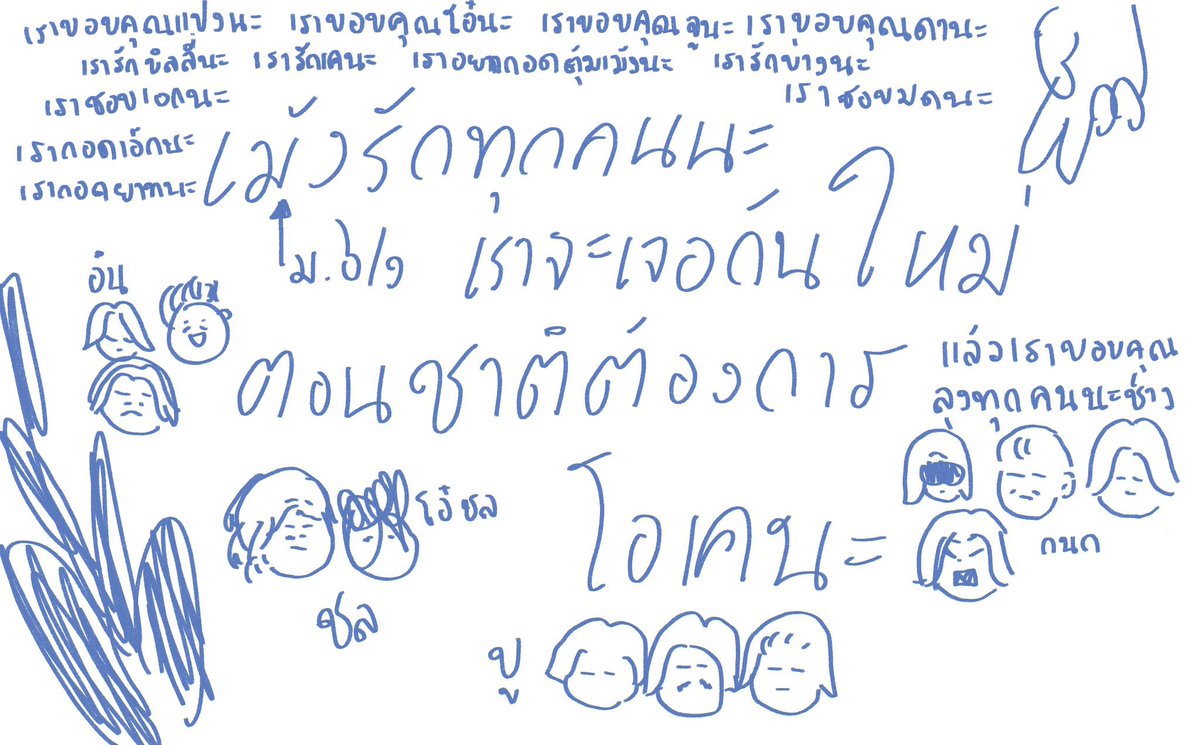 เราขอบคุณแป้งนะ เราขอบคุณโอ๋นะ เราขอบคุณจูนะ เราขอบคุณดานะ
เรารักบิลลี่นะ เรารักเคนะ เราอยากกอดตุ้มเม้งนะ เรารักข่างนะ
เราชอบเอกนะ
เราชอบมดนะ
เรากอดเอ๊กนะ
เรากอดยาหนะ
เม้งรักทุกคนนะ
ม.6/1
เราจะเจอกันใหม่
ตอนชาติต้องการ
โอเคนะ
อัน
แล้วเราขอบคุณ
ลุงทุกคนนะช้าง
กนก
โอ๋ ชล
ชล
ปู